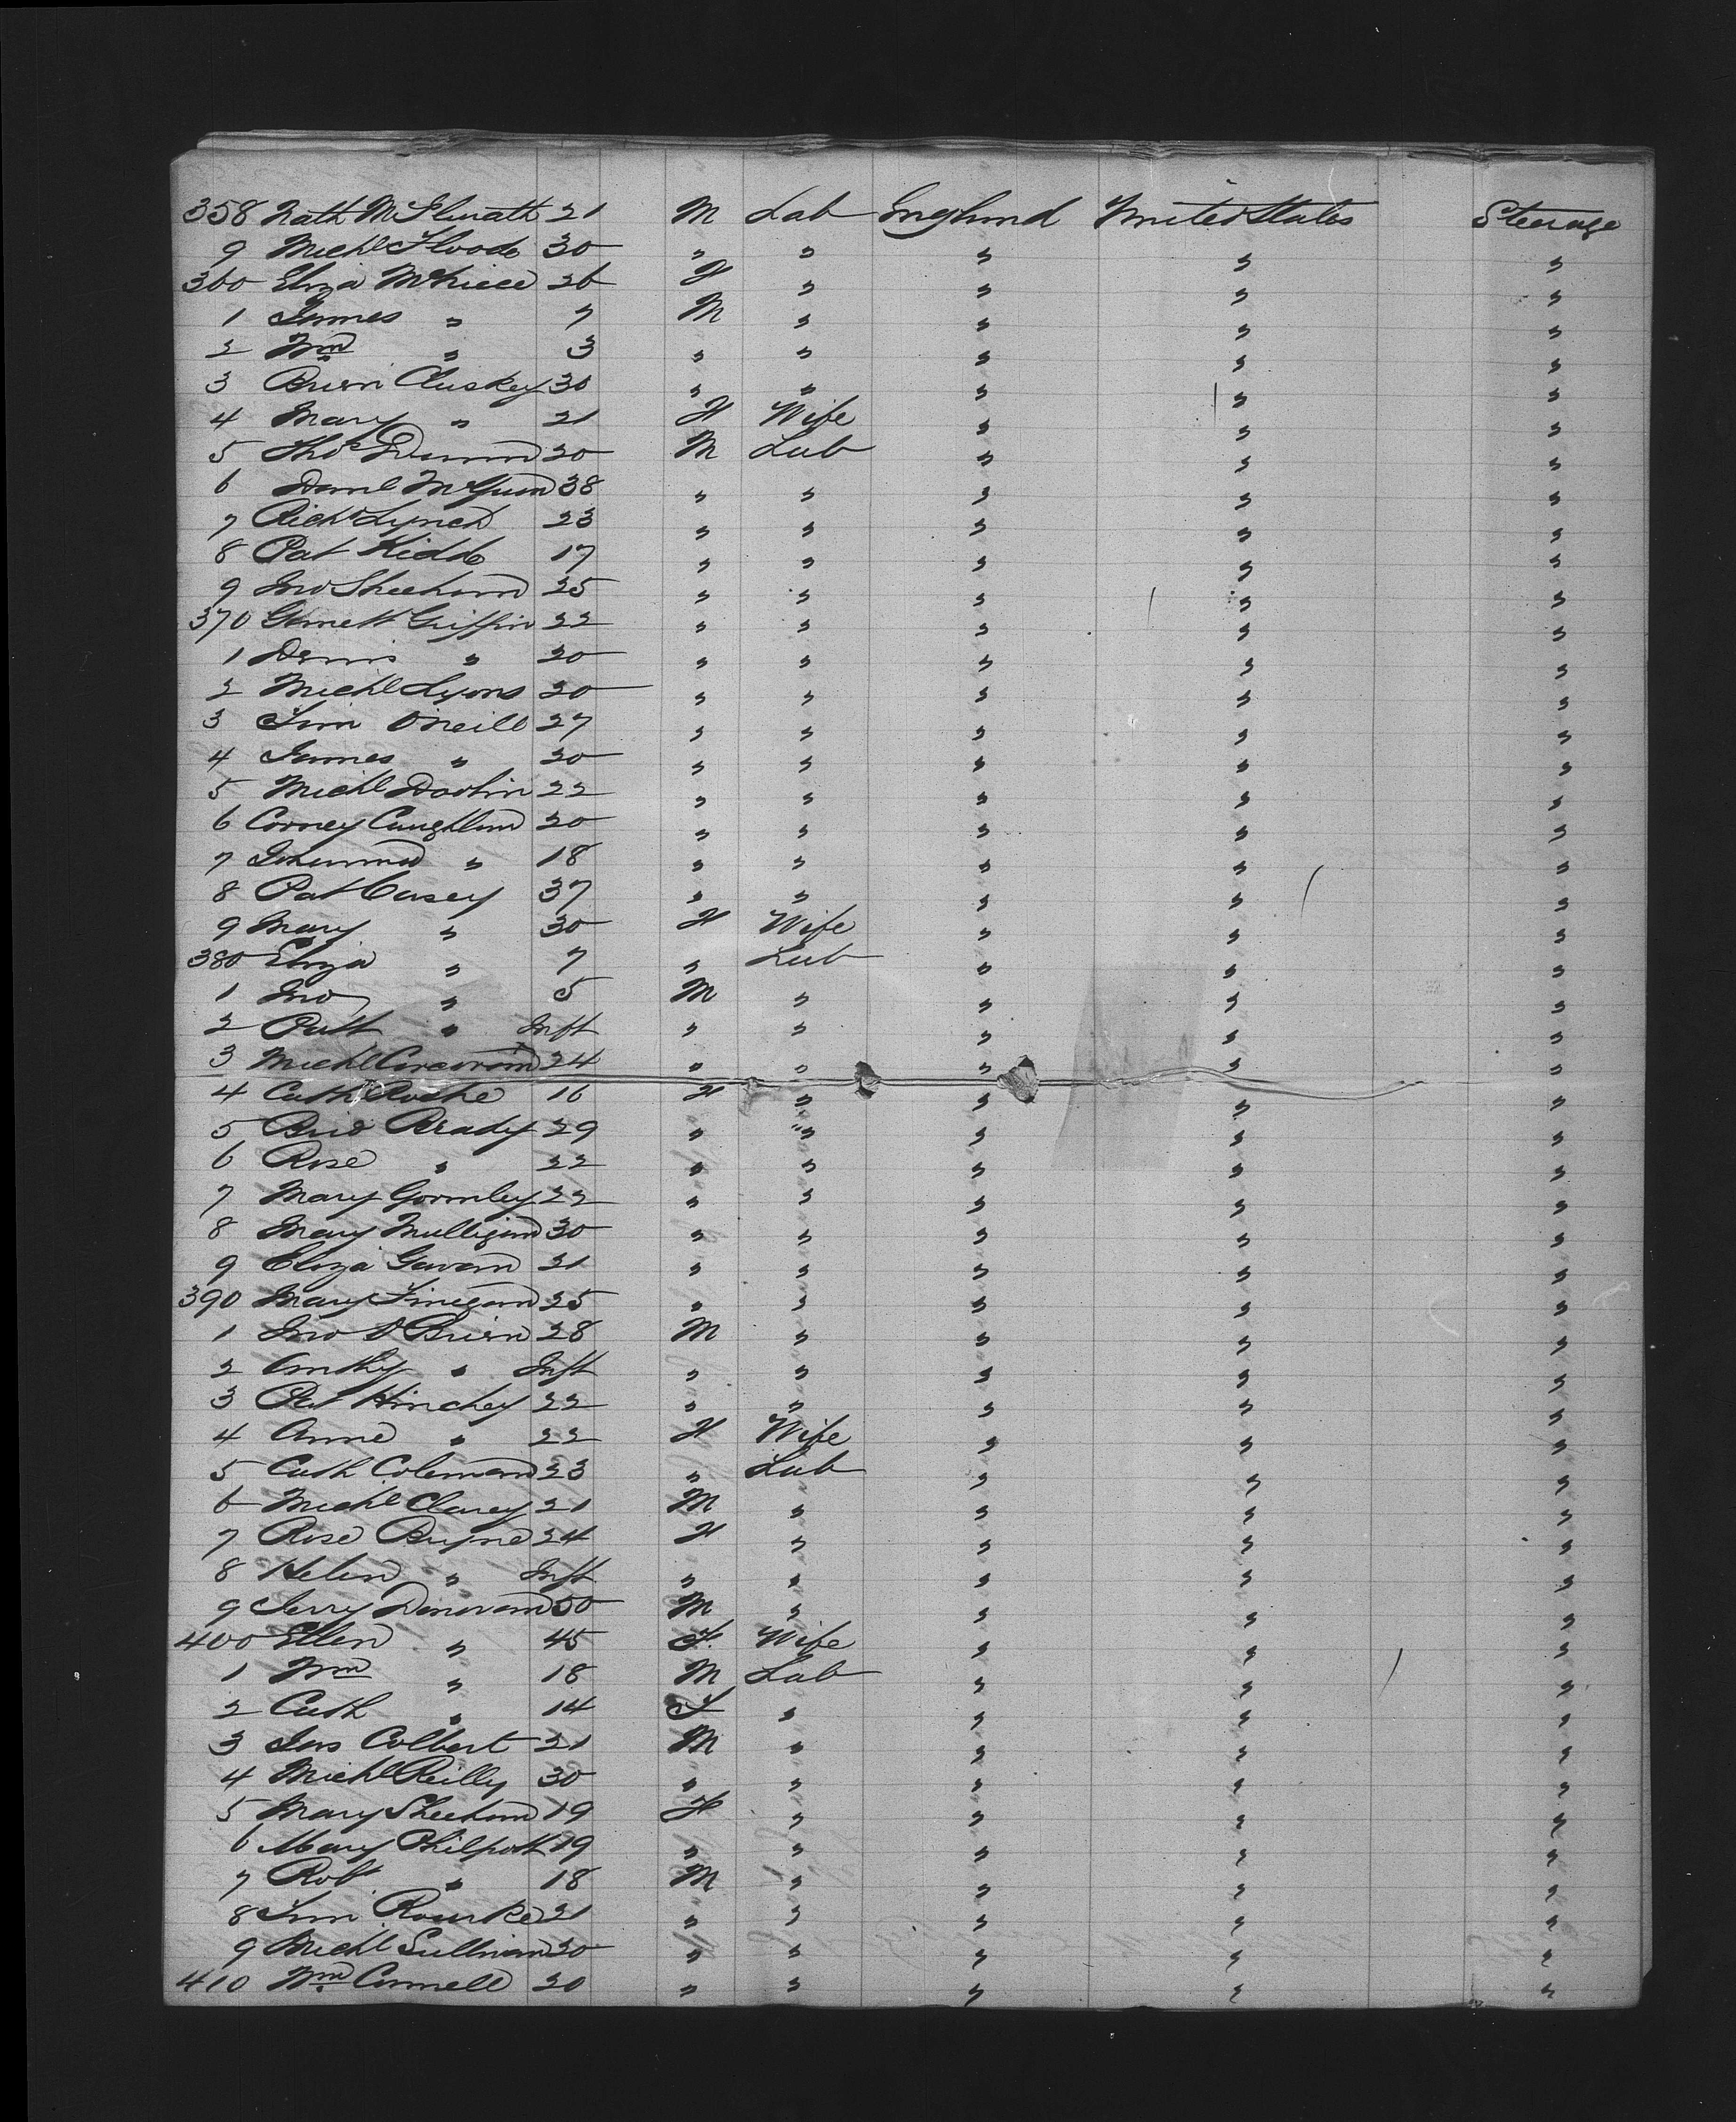 358 Nath McIlwrath 21 M Lab England United States Steerage
9 Michl Flood 30 " " " " "
360 Eliza McKiece 26 F " " " "
1 James " 7 M " " " "
2 Wm " 3 " " " " "
3 Brien Cluskey 30 " " " " "
4 Mary " 21 F Wife " " "
5 Thos Dunn 20 M Lab " " "
6 Danl McGuin 38 " " " " "
7 Richd Lynch 23 " " " " "
8 Pat Kidd 17 " " " " "
9 Jno Sheehan 25 " " " " "
370 Garrett Griffin 22 " " " " "
1 Denis " 20 " " " " "
2 Michl Lyons 20 " " " " "
3 Tim O'Neill 27 " " " " "
4 James " 20 " " " " "
5 Michl Doolin 22 " " " " "
6 Corney Caughlin 20 " " " " "
7 Johanna " 18 " " " " "
8 Pat Casey 37 " " " " "
9 Mary " 30 F Wife " " "
380 Eliza " 7 " Lab " " "
1 Jno " 5 M " " " "
2 Patk " Inft " " " " "
3 Michl Corcoran 24 " " " " "
4 Cath Roche 16 F " " " "
5 Brid Brady 29 " " " " "
6 Rose " 22 " " " " "
7 Mary Gormley 22 " " " " "
8 Mary Mulligan 30 " " " " "
9 Eliza Gavan 21 " " " " "
390 Mary Finegan 25 " " " " "
1 Jno O'Brien 28 M " " " "
2 " Inft " " " " "
3 Pat Hinchey 22 " " " " "
4 Anne " 22 F Wife " " "
5 Cath Coleman 23 " Lab " " "
6 Michl Clarey 21 M " " " "
7 Rose Byrne 24 F " " " "
8 Helen " Inft " " " " "
9 Jerry Donovan 50 M " " " "
400 Ellen " 45 F. Wife " " "
1 Wm " 18 M Lab " " "
2 Cath " 14 F " " " "
3 Jas Colbert 21 M " " " "
4 Michl Reilly 30 " " " " "
5 Mary Sheehan 19 F " " " "
6 Mary Philpott 19 " " " " "
7 Robt " 18 M " " " "
8 Tim Rourke 21 " " " " "
9 Michl Sullivan 20 " " " " "
410 Wm Connell 20 " " " " "